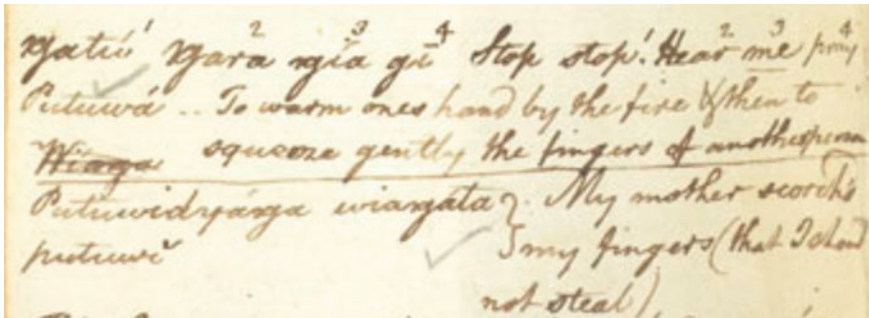 ŋatiú¹ ŋara² ŋía³ gī⁴ Stop stop! Hear² me³ pray⁴
Putuwá .. To warm ones hand by the fire & then to
squeeze gently the fingers of another person
Putuwidyáŋa wiaŋáta }. My mother scorch's
putuwi } my fingers (that I shoud
not steal)